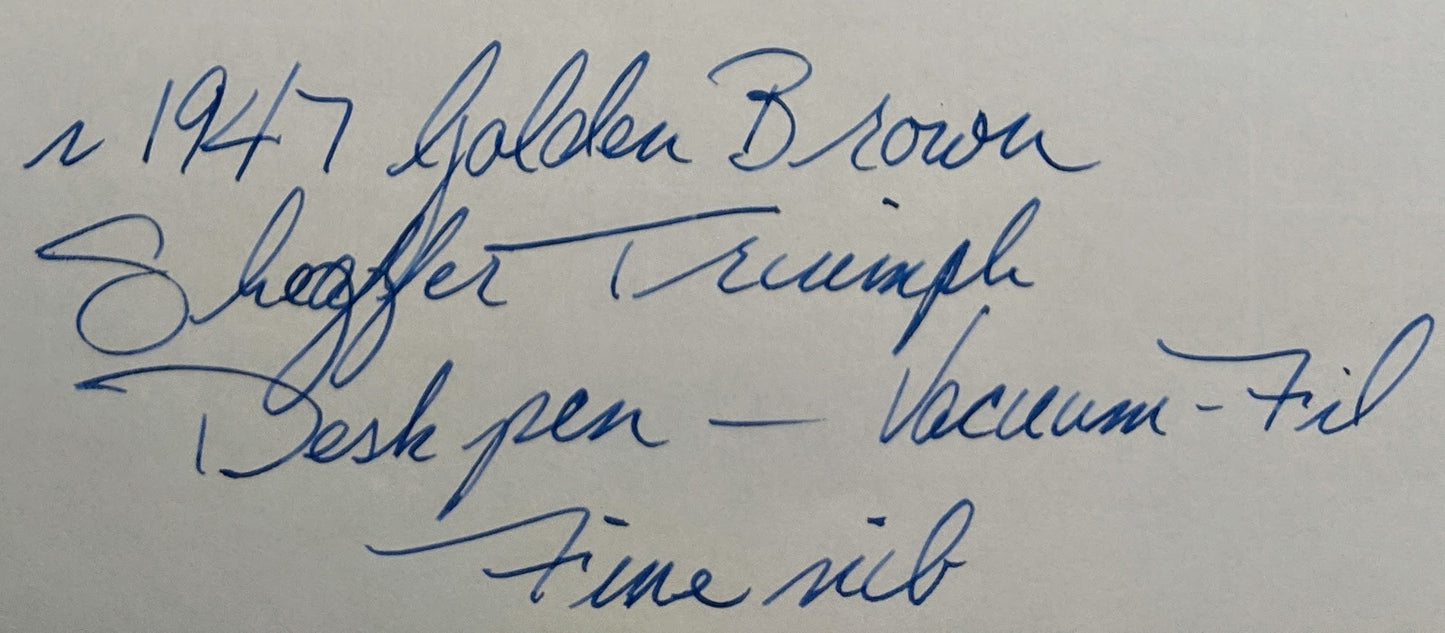 ~ 1947 Golden Brown
Sheaffer Triumph
Desk pen — Vacuum-Fil
Fine nib